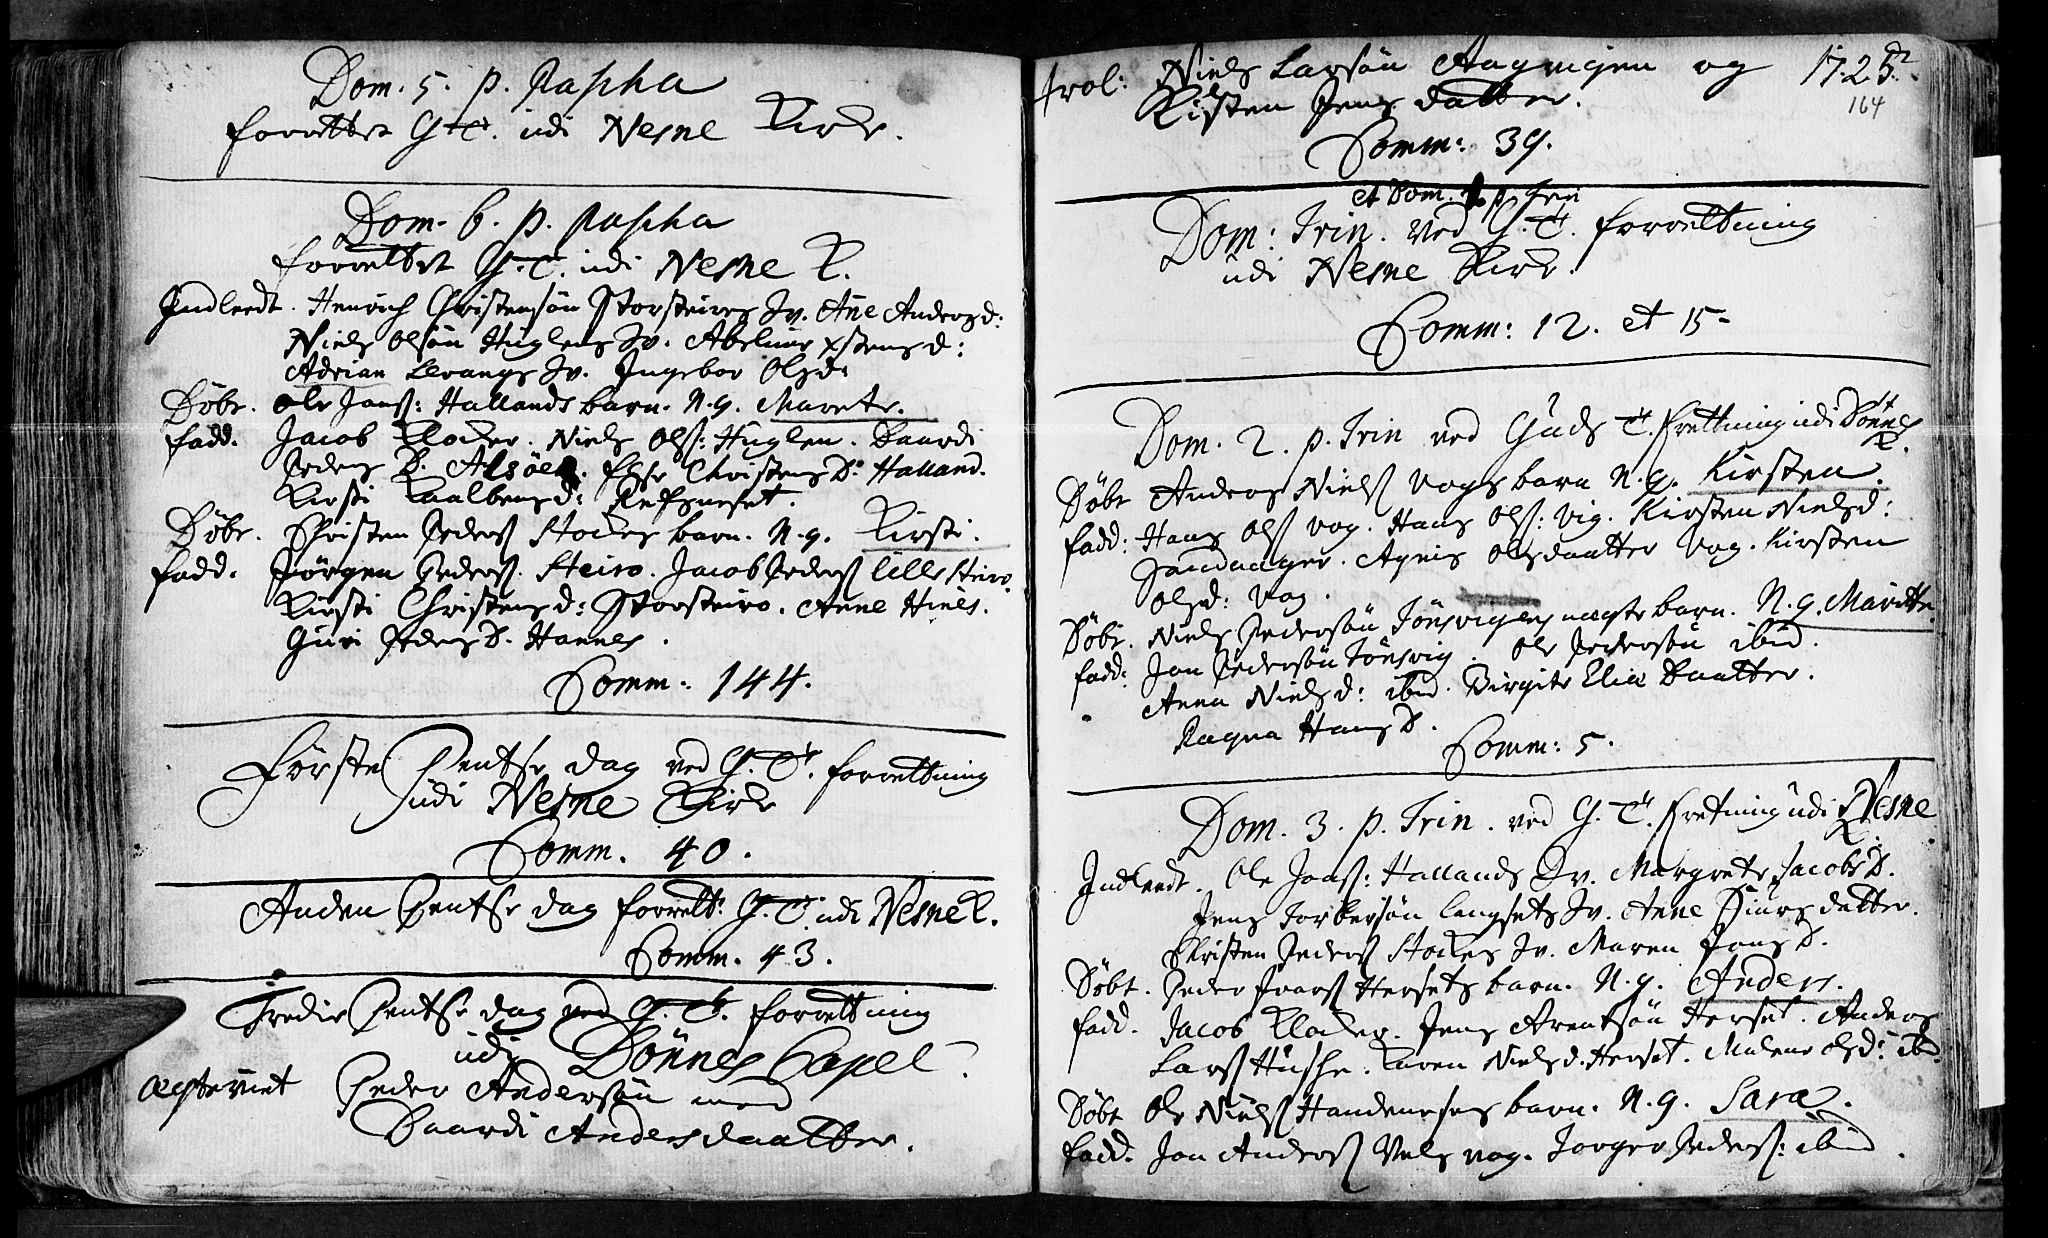 Dom. 5. p. Pascha
forrettet G. T. udi Nesne Kirke.
Dom. 6. p. Pascha
forrettet G. T. udi Nesne K.
Indleedt. Henrich Christensøn Storsteires Qv. Ane Andersd:
Niels Olsøn Huglens Qv. Abelune Xstensd:
Adrian Levangs Qv. Ingebor Olsd:
Døbt. Ole Jonss: Hallands barn. N. g. Marete.
fadd. Jacob Klocker. Niels Olss: Huglen. Baardi
Peders D. Alsøen. Christens D: Halland.
Kirsti d: Refsneset.
Døbt. Christen Pederss Stockes barn. N. g. Kirsti.
fadd. Jørgen Pederss. Steiro. Jacob Pederss lille Steiro
Kirsti Christensd: Storsteiro. Anne Hines.
Guri Peders D. Hannes.
Comm: 144.
Første Pentse dag ved G. T. forrettning
udi Nesne Kirke
Comm. 40.
Anden Pentse dag forrett: G. T. udi Nesne K.
Comm. 43.
Tredie Pentse dag ved G. T. forrettning
udi Dønnes Capel
Egteviet Peder Andersøn med
Baardi Andersdaatter.
trol: Niels Larsøn Aagvigen og 1725.
164
Kisten Jens datter.
Comm: 39.
et Dom. 1 p. Trin
Dom: Trin. ved G. T. forrettning
udi Nesne Kirke.
Comm: 12. et 15-
Dom. 2. p. Trin ved Guds T. frettning udi Dønnes
K.
Døbt Anders Nielss Vogs barn N. g. Kirsten.
fadd: Hans Olss Vog. Hans Olss: Vig. Kirsten Nielsd:
Sandaager. Agnis Olsdaatter Vog. Kirsten
Olsd: Vog.
Døbt. Niels Pedersøn Tønsvigens uægte barn. N. g. Maritte.
fadd: Jon Pedersøn Tønsvig. Ole Pedersøn ibid.
Anna Nielsd: ibid. Birgite Eliæ Daatter.
Ragna Hans D.
Comm: 5.
Dom. 3. p. Trin. ved G. T. fretning udi Nesne
K.
Indleedt. Ole Jonss: Hallands Qv. Margrete Jacobs D.
Jens Torbersøn Langsets Qv. Anne Siurs datter.
Christen Pederss Stockes Qv. Maren Jons D.
Døbt. Peder Ivarss Hersets barn. N. g. Anders.
fadd. Jacob Klocker. Jens Arentsøn Herset. Anders
Larss Husbye. Karen Nielsd. Herset. Malene Olsd: ibd.
Døbt Ole Nielss Handnesens barn. N. g. Sara.
fadd. Jon Anderss Vels vog. Torger Pederss: ibid.